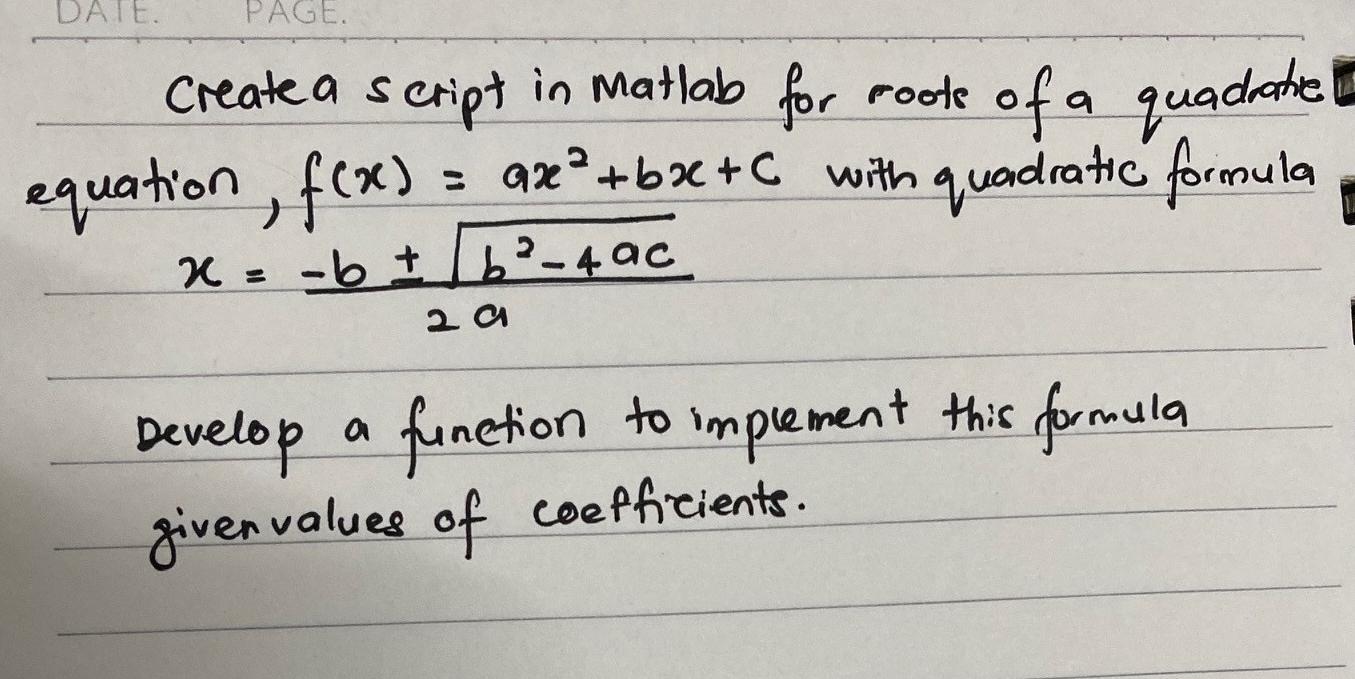 DATE. PAGE.
Create a script in Matlab for roots of a quadratic
equation, f(x) = ax² + bx + c with quadratic formula
x = -b ± √b² - 4ac
2a
Develop a function to implement this formula
given values of coefficients.